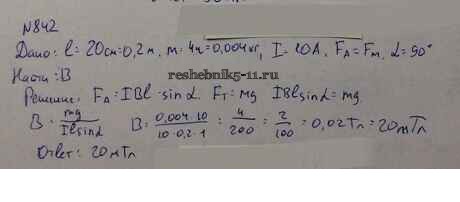 N842
Дано: l=20см=0,2м, m=4г=0,004кг, I=10А, Fа=Fт, α=90°
Найти: B
reshebnik5-11.ru
Решение: Fа=IBl·sinα. Fт=mg IBlsinα=mg.
B=mg/Ilsinα B=0,004·10/10·0,2·1=4/200=2/100=0,02Тл=20мТл
Ответ: 20мТл